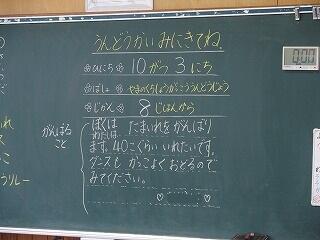 うんどうかいみにきてね
ひにち 10がつ3にち
ばしょ やまのくちしょうがっこううんどうじょう
じかん 8じはんから
がんばる
こと
ぼくは
わたしは
たまいれをがんばり
ます。40こぐらいいれたいです。
ダンスもかっこよくおどるので
みてください。
リレー